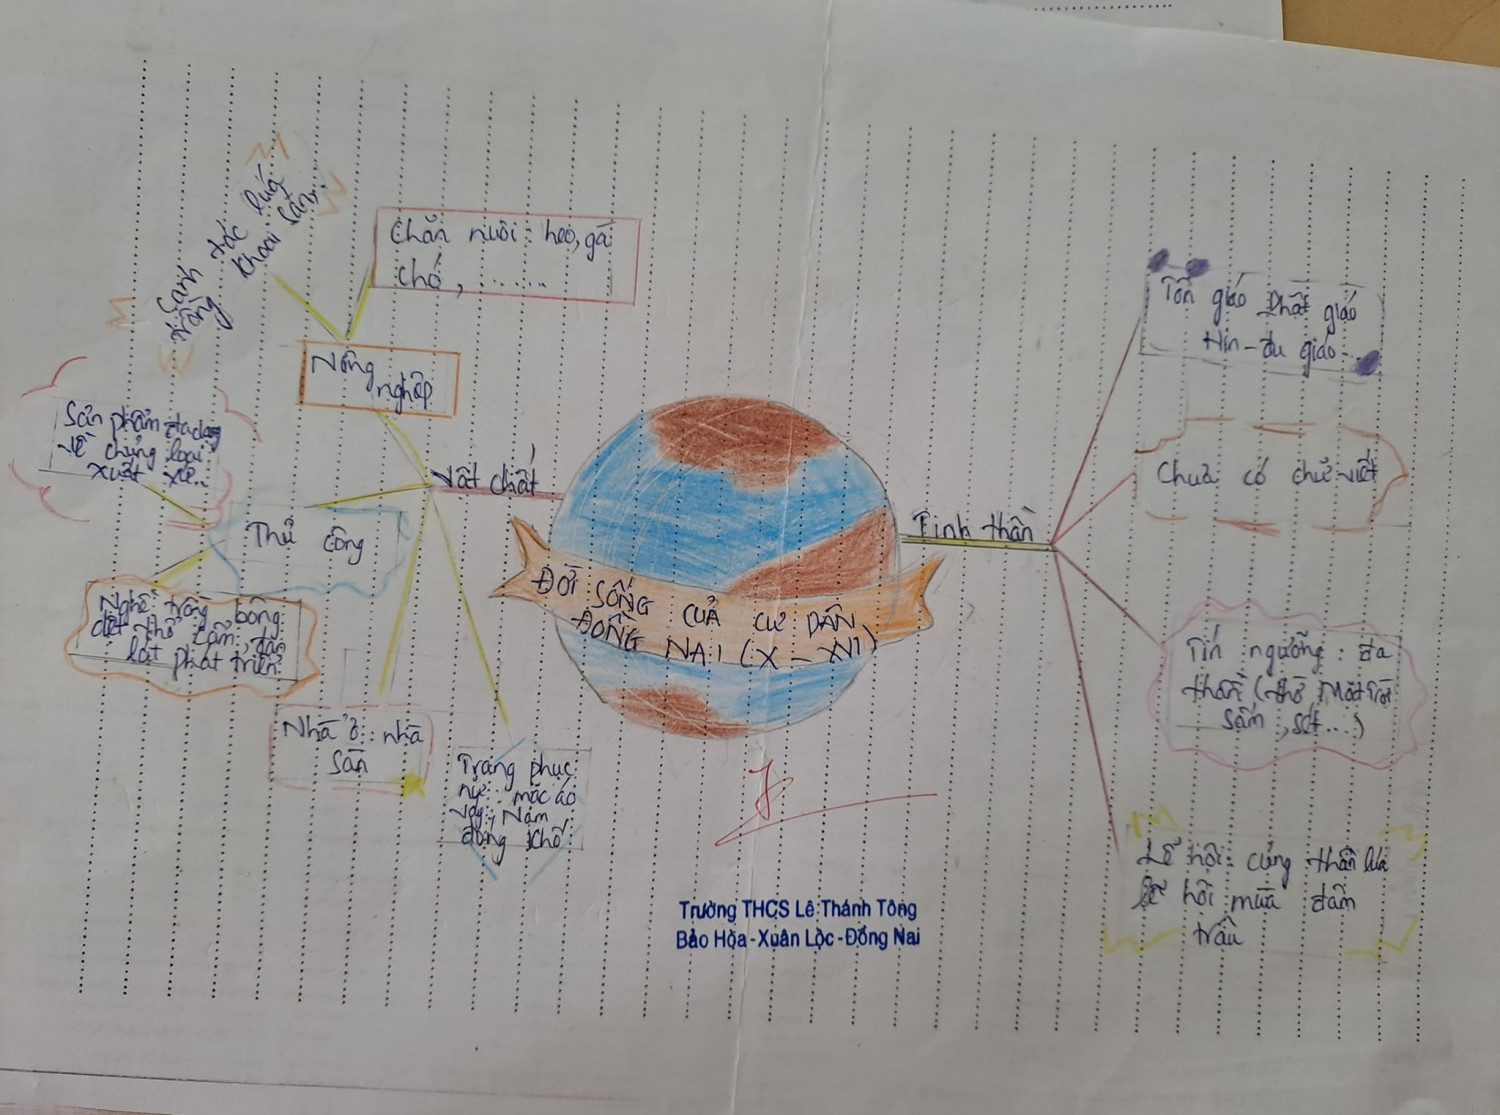 ĐỜI SỐNG CỦA CƯ DÂN
ĐỒNG NAI (X – XVI)
Vật chất
Nông
nghiệp
Canh tác lúa
trồng khoai sắn...
Chăn nuôi: heo, gà
chó, .......
Thủ công
Sản phẩm đa dạng
về chủng loại
xuất xứ...
Nghề trồng bông
dệt thổ cẩm, đan
lát phát triển
Nhà ở: nhà
sàn
Trang phục
nữ: mặc áo
váy, Nam
đóng khố
Tinh thần
Tôn giáo Phật giáo
Hin-đu giáo...
Chưa có chữ viết
Tín ngưỡng: đa
thần (thờ Mặt Trời
sấm, sét...)
Lễ hội: cúng thần lúa
lễ hội mùa đâm
trâu
Trường THCS Lê Thánh Tông
Bảo Hòa-Xuân Lộc-Đồng Nai